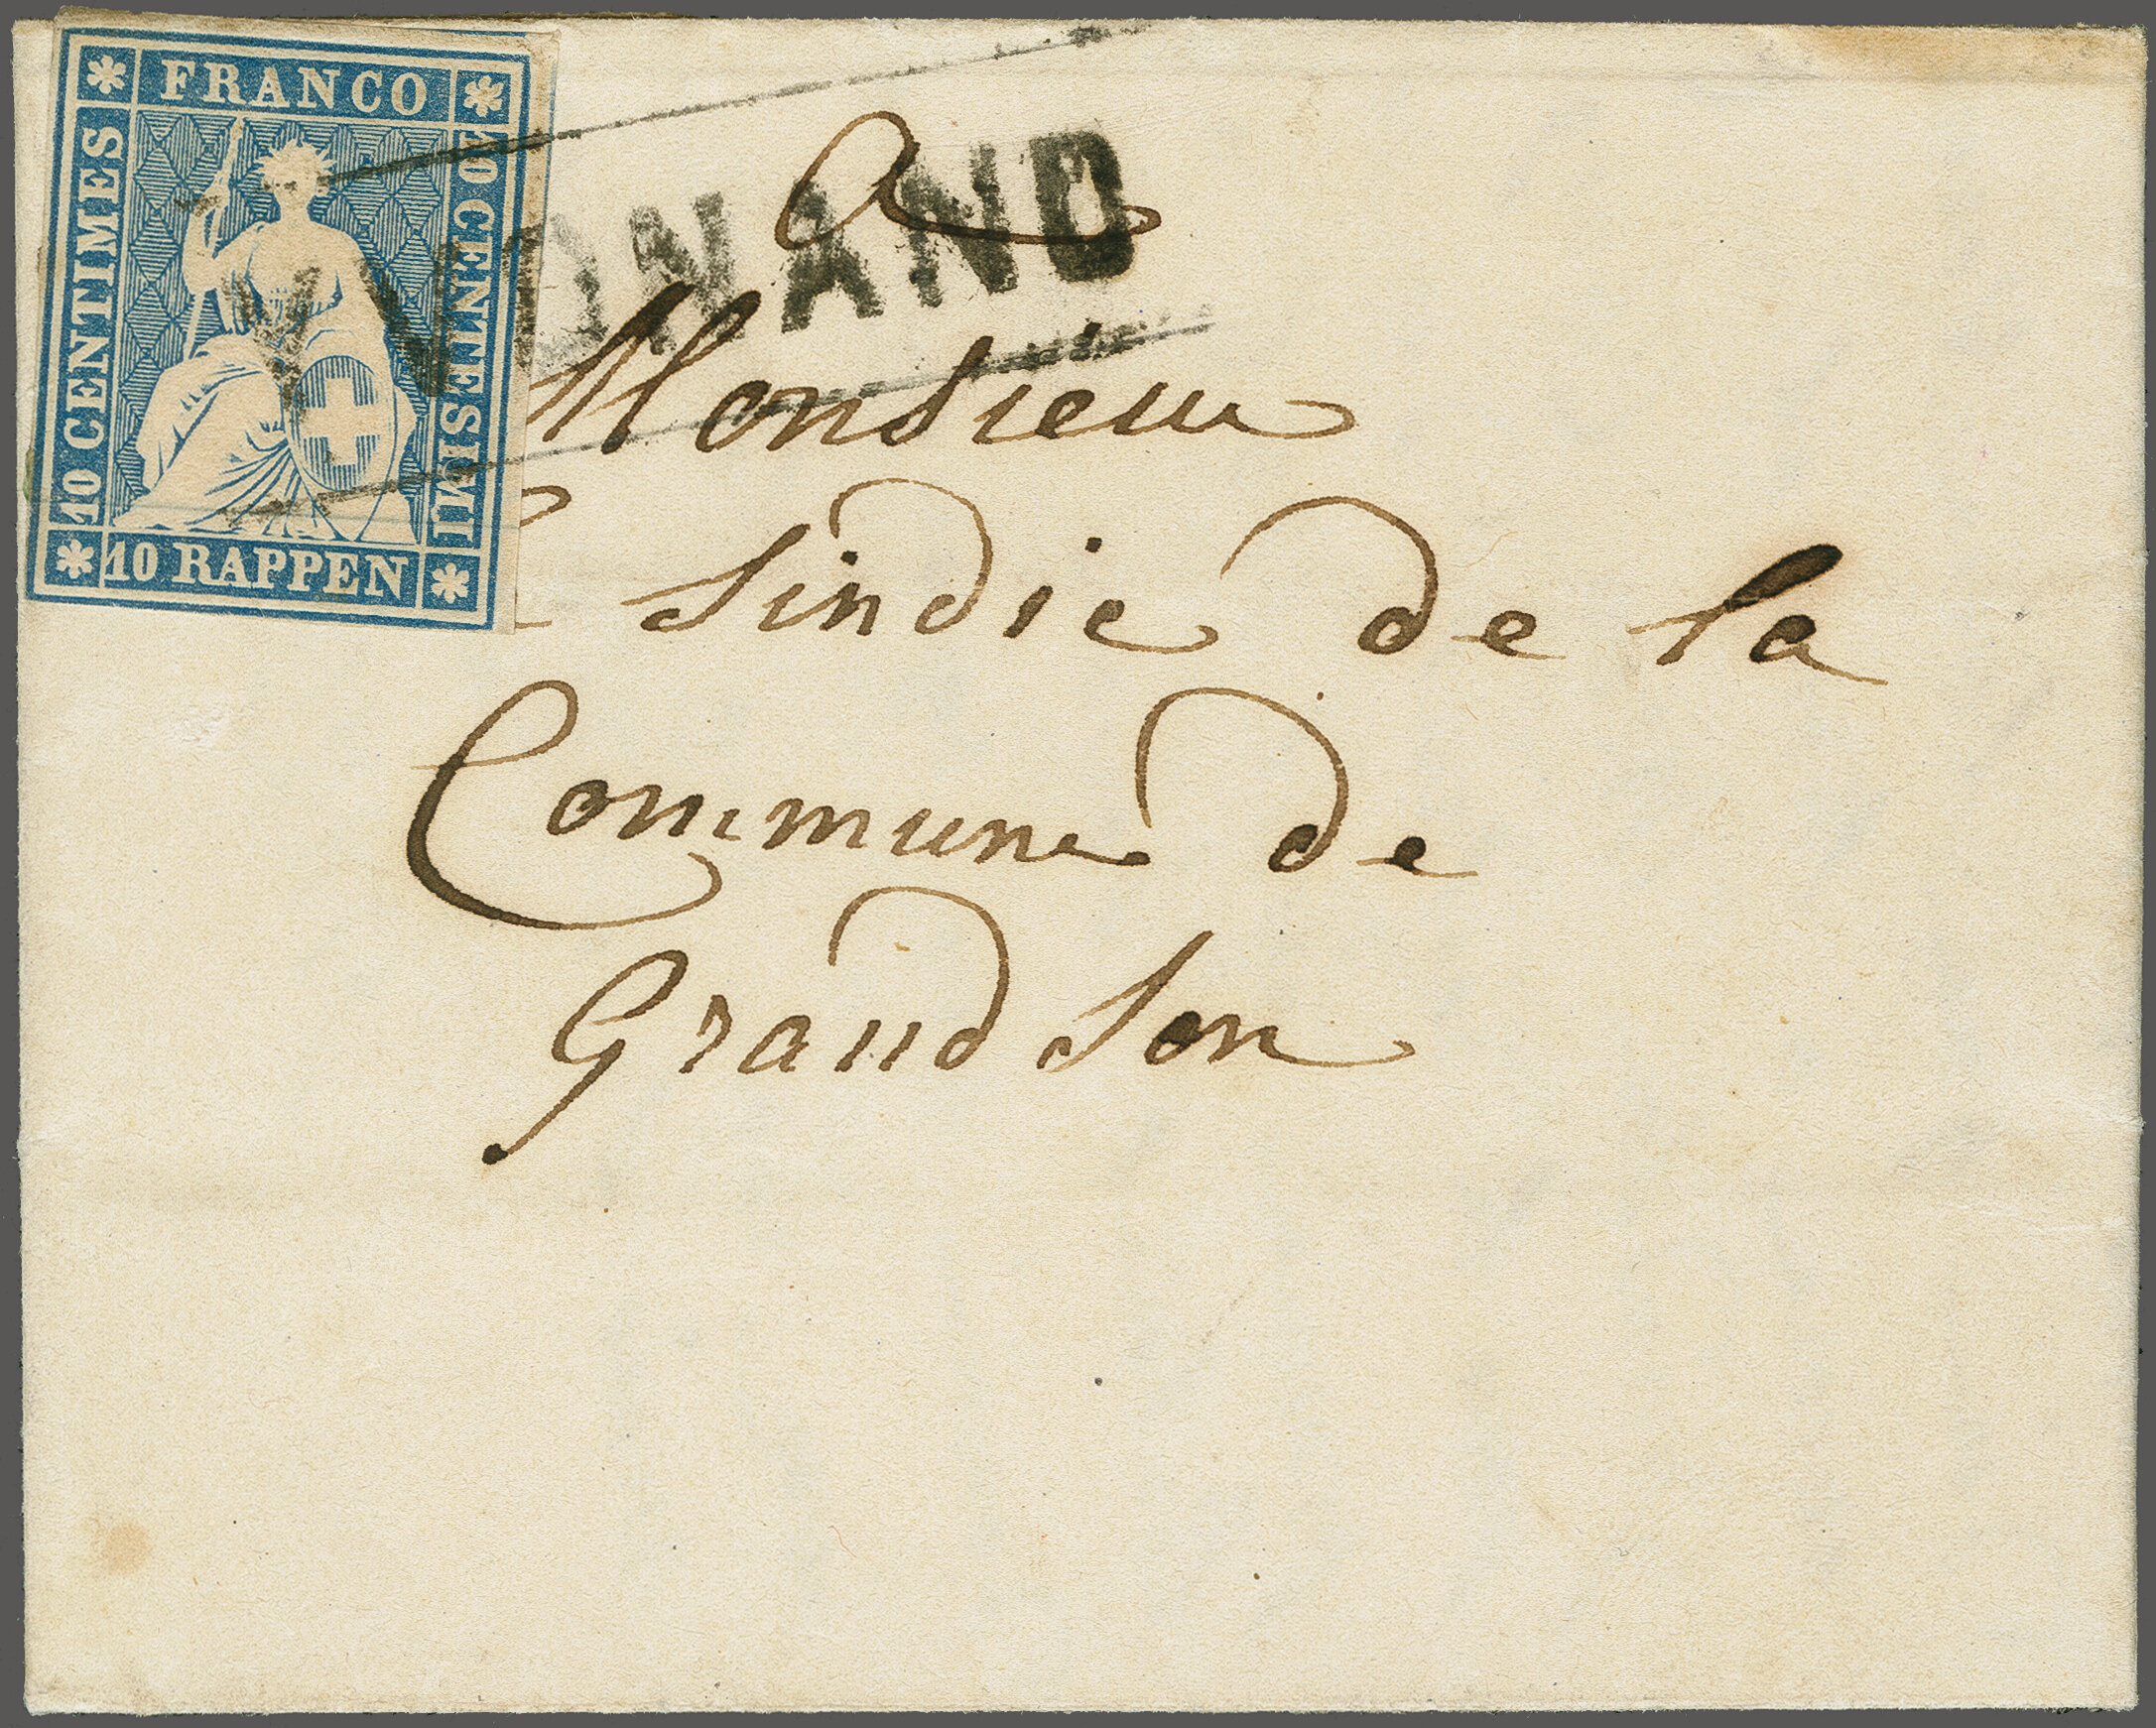 FRANCO
10 CENTIMES
10 CENTESIMI
10 RAPPEN
YVONAND
a
Monsieur
sindic de la
Commune de
Grandson